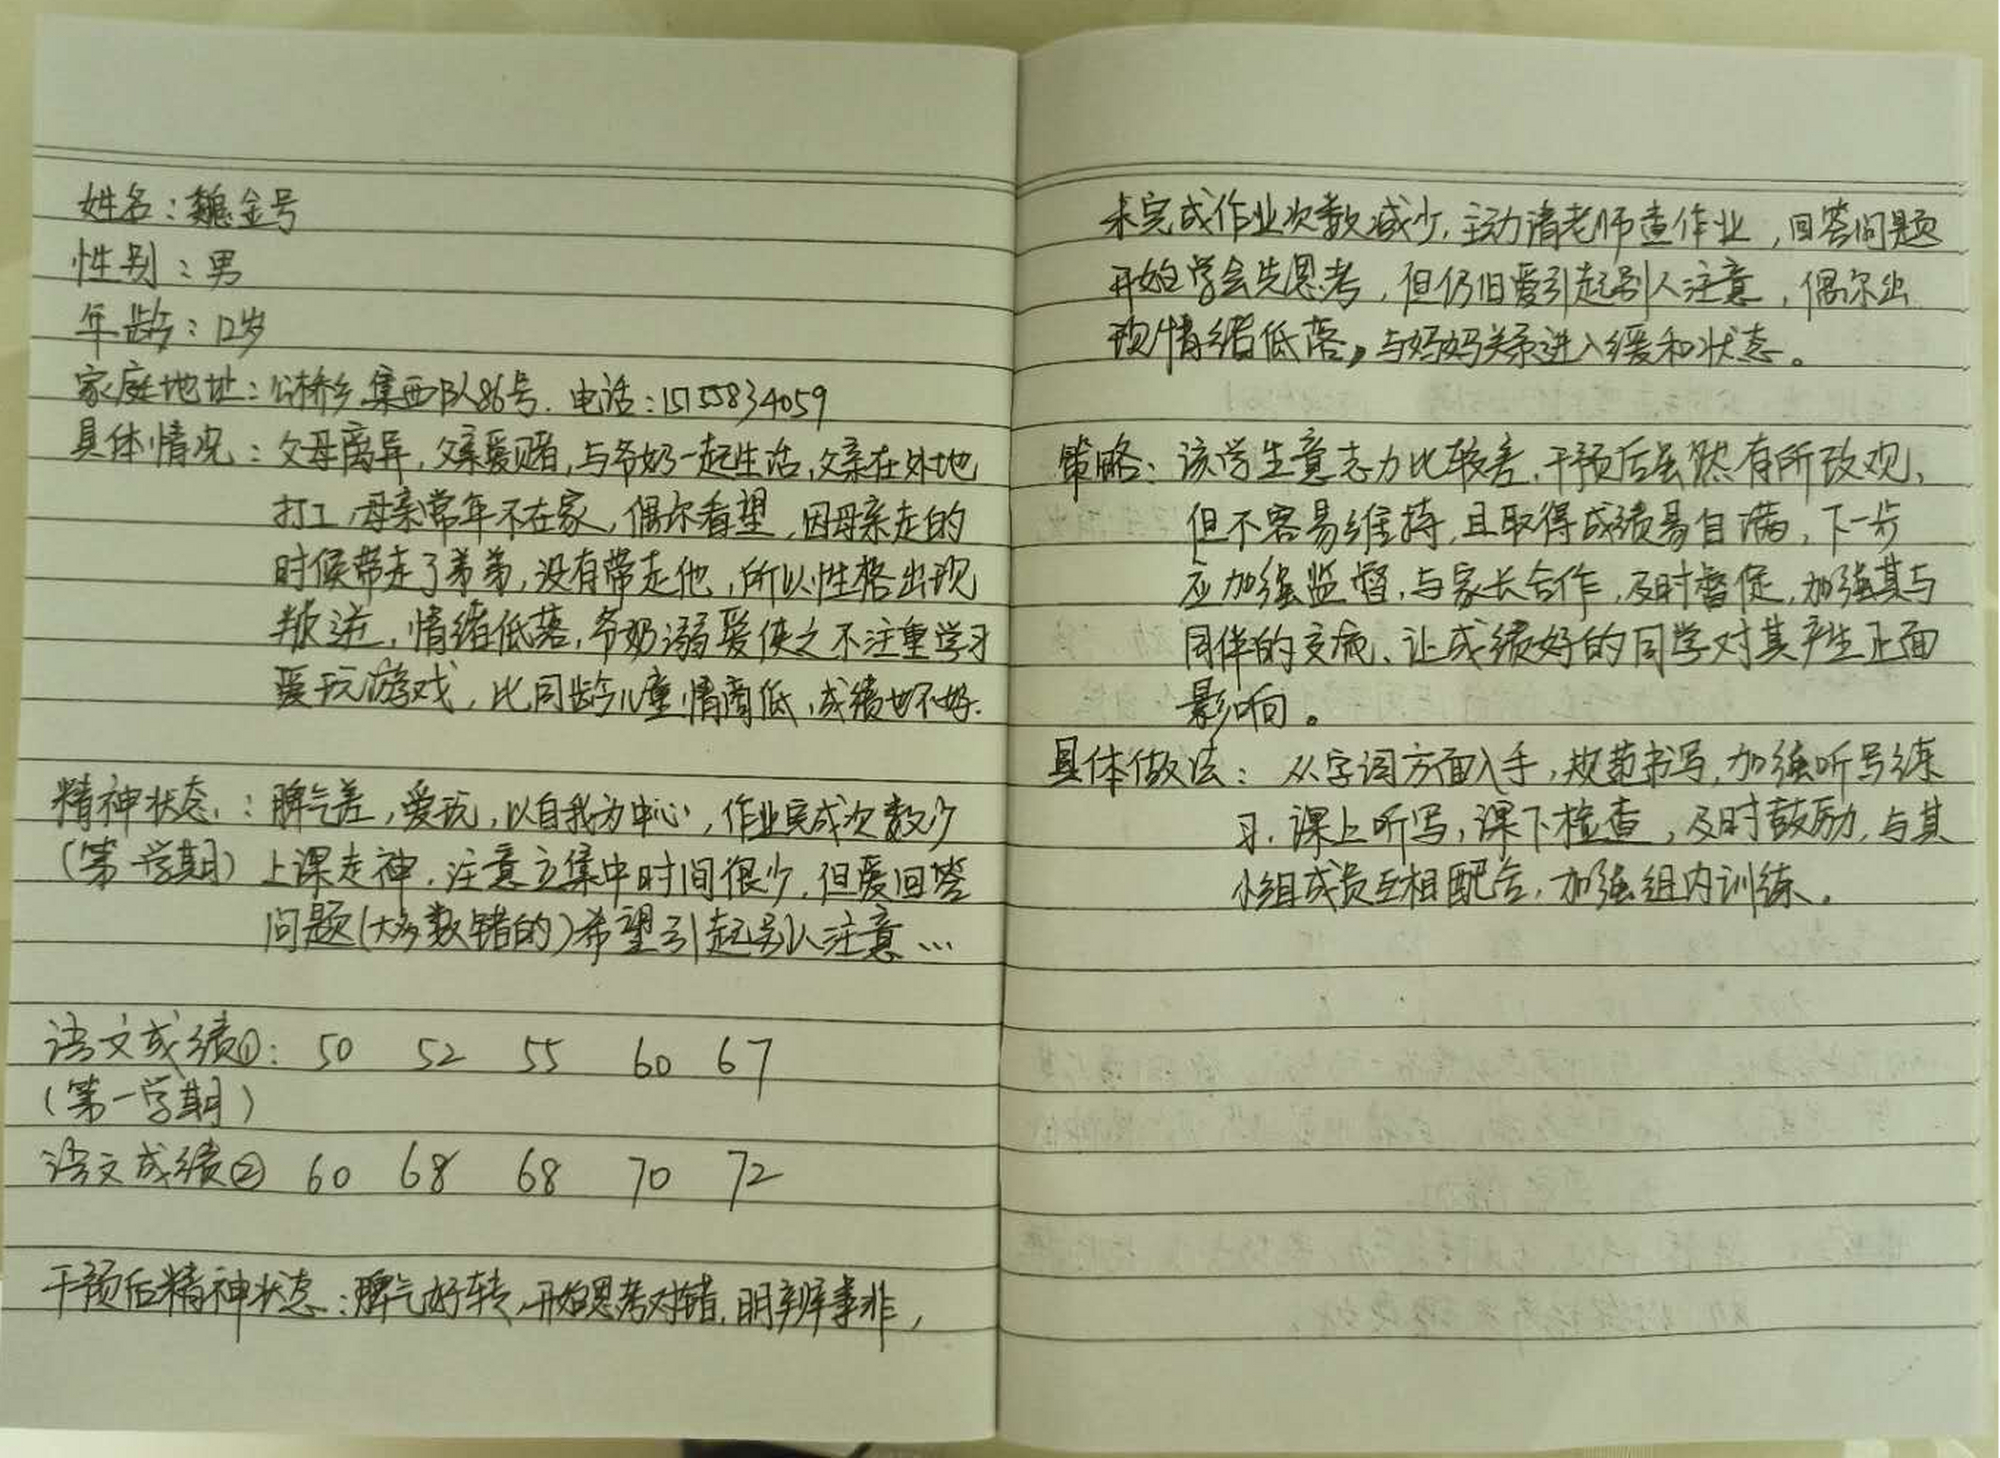 姓名：魏金号
性别：男
年龄：12岁
家庭地址：公桥乡集西队86号. 电话：15155834059
具体情况：父母离异，父亲爱赌，与爷奶一起生活，父亲在外地
打工，母亲常年不在家，偶尔看望，因母亲走的
时候带走了弟弟，没有带走他，所以性格出现
叛逆，情绪低落，爷奶溺爱使之不注重学习
爱玩游戏，比同龄儿童情商低，成绩也不好.
精神状态：脾气差，爱玩，以自我为中心，作业完成次数少
（第一学期）上课走神，注意立集中时间很少，但爱回答
问题(大多数错的)希望引起别人注意…
语文成绩①：50 52 55 60 67
（第一学期）
语文成绩② 60 68 68 70 72
干预后精神状态：脾气好转，开始思考对错，明辨事非，
未完成作业次数减少，主动请老师查作业，回答问题
开始学会先思考，但仍旧爱引起别人注意，偶尔出
现情绪低落，与妈妈关系进入缓和状态。
策略：该学生意志力比较差，干预后虽然有所改观，
但不容易维持，且取得成绩易自满，下一步
应加强监督，与家长合作，及时督促，加强其与
同伴的交流、让成绩好的同学对其产生正面
影响。
具体做法：从字词方面入手，规范书写，加强听写练
习，课上听写，课下检查，及时鼓励，与其
小组成员互相配合，加强组内训练。